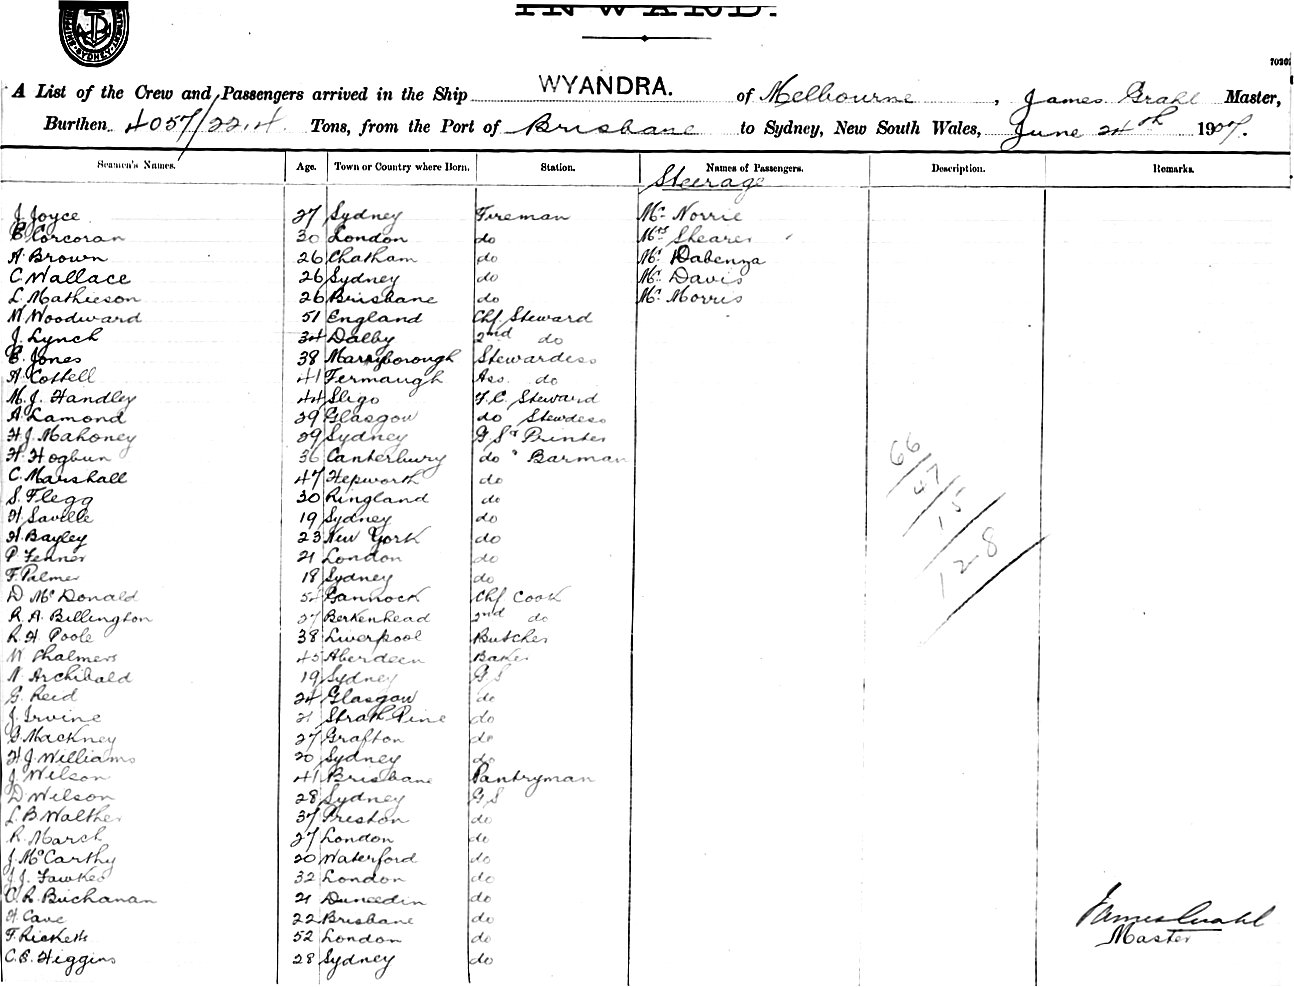 INWARD.
SYDNEY
70302
A List of the Crew and Passengers arrived in the Ship WYANDRA. of Melbourne, James Grahl Master,
Burthen 4057/2214 Tons, from the Port of Brisbane to Sydney, New South Wales, June 24th 1907.
Seamen's Names. Age. Town or Country where Born. Station. Names of Passengers. Description. Remarks.
Steerage
J Joyce 27 Sydney Fireman Mr Norrie
E Corcoran 30 London do Mrs Shearer
A Brown 26 Chatham do Mr Dabenza
C Wallace 26 Sydney do Mr Davis
L Mathieson 26 Brisbane do Mr Morris
W Woodward 51 England Chf Steward
J Lynch 34 Dalby 2nd do
E Jones 38 Maryborough Stewardess
A Cottell 41 Fermaugh Ass. do
M. J. Handley 44 Sligo F.C. Steward
A Lamond 39 Glasgow do Stewdess
H J Mahoney 29 Sydney G S & Printer
H Hogbun 36 Canterbury do " Barman
C Marshall 47 Hepworth do
S. Flegg 30 Ringland do
H Saville 19 Sydney do
H Bayley 23 New York do
P Fenner 21 London do
F. Palmer 18 Sydney do
D McDonald 52 Gannock Chf Cook
R. A. Billington 27 Berkenhead 2nd do
R. H. Poole 38 Liverpool Butcher
W Chalmers 45 Aberdeen Baker
N Archibald 19 Sydney G S
G. Reid 24 Glasgow do
J. Irvine 21 Strath Pine do
G Mackney 27 Grafton do
H J Williams 20 Sydney do
J Wilson 41 Brisbane Pantryman
D Wilson 28 Sydney G S
L. B Walther 37 Preston do
R. March 27 London do
J. McCarthy 20 Waterford do
J. J. Fawkes 32 London do
O. R. Buchanan 21 Dunedin do
H Cave 22 Brisbane do
F. Ricketts 52 London do
C. E. Higgins 28 Sydney do
66/47/15/128
James Grahl
Master